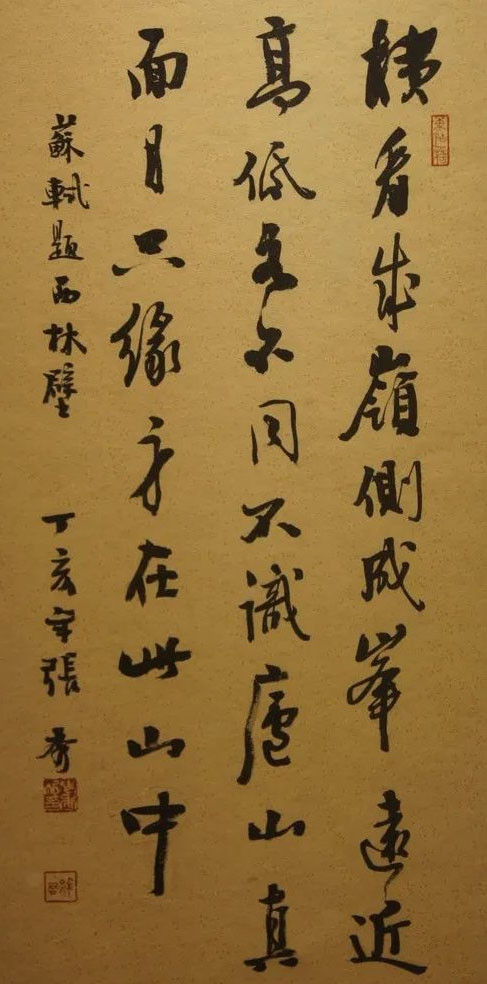 橫看成嶺側成峯遠近
高低各不同不識廬山真
面目只緣身在此山中
蘇軾題西林壁
丁亥年張秀